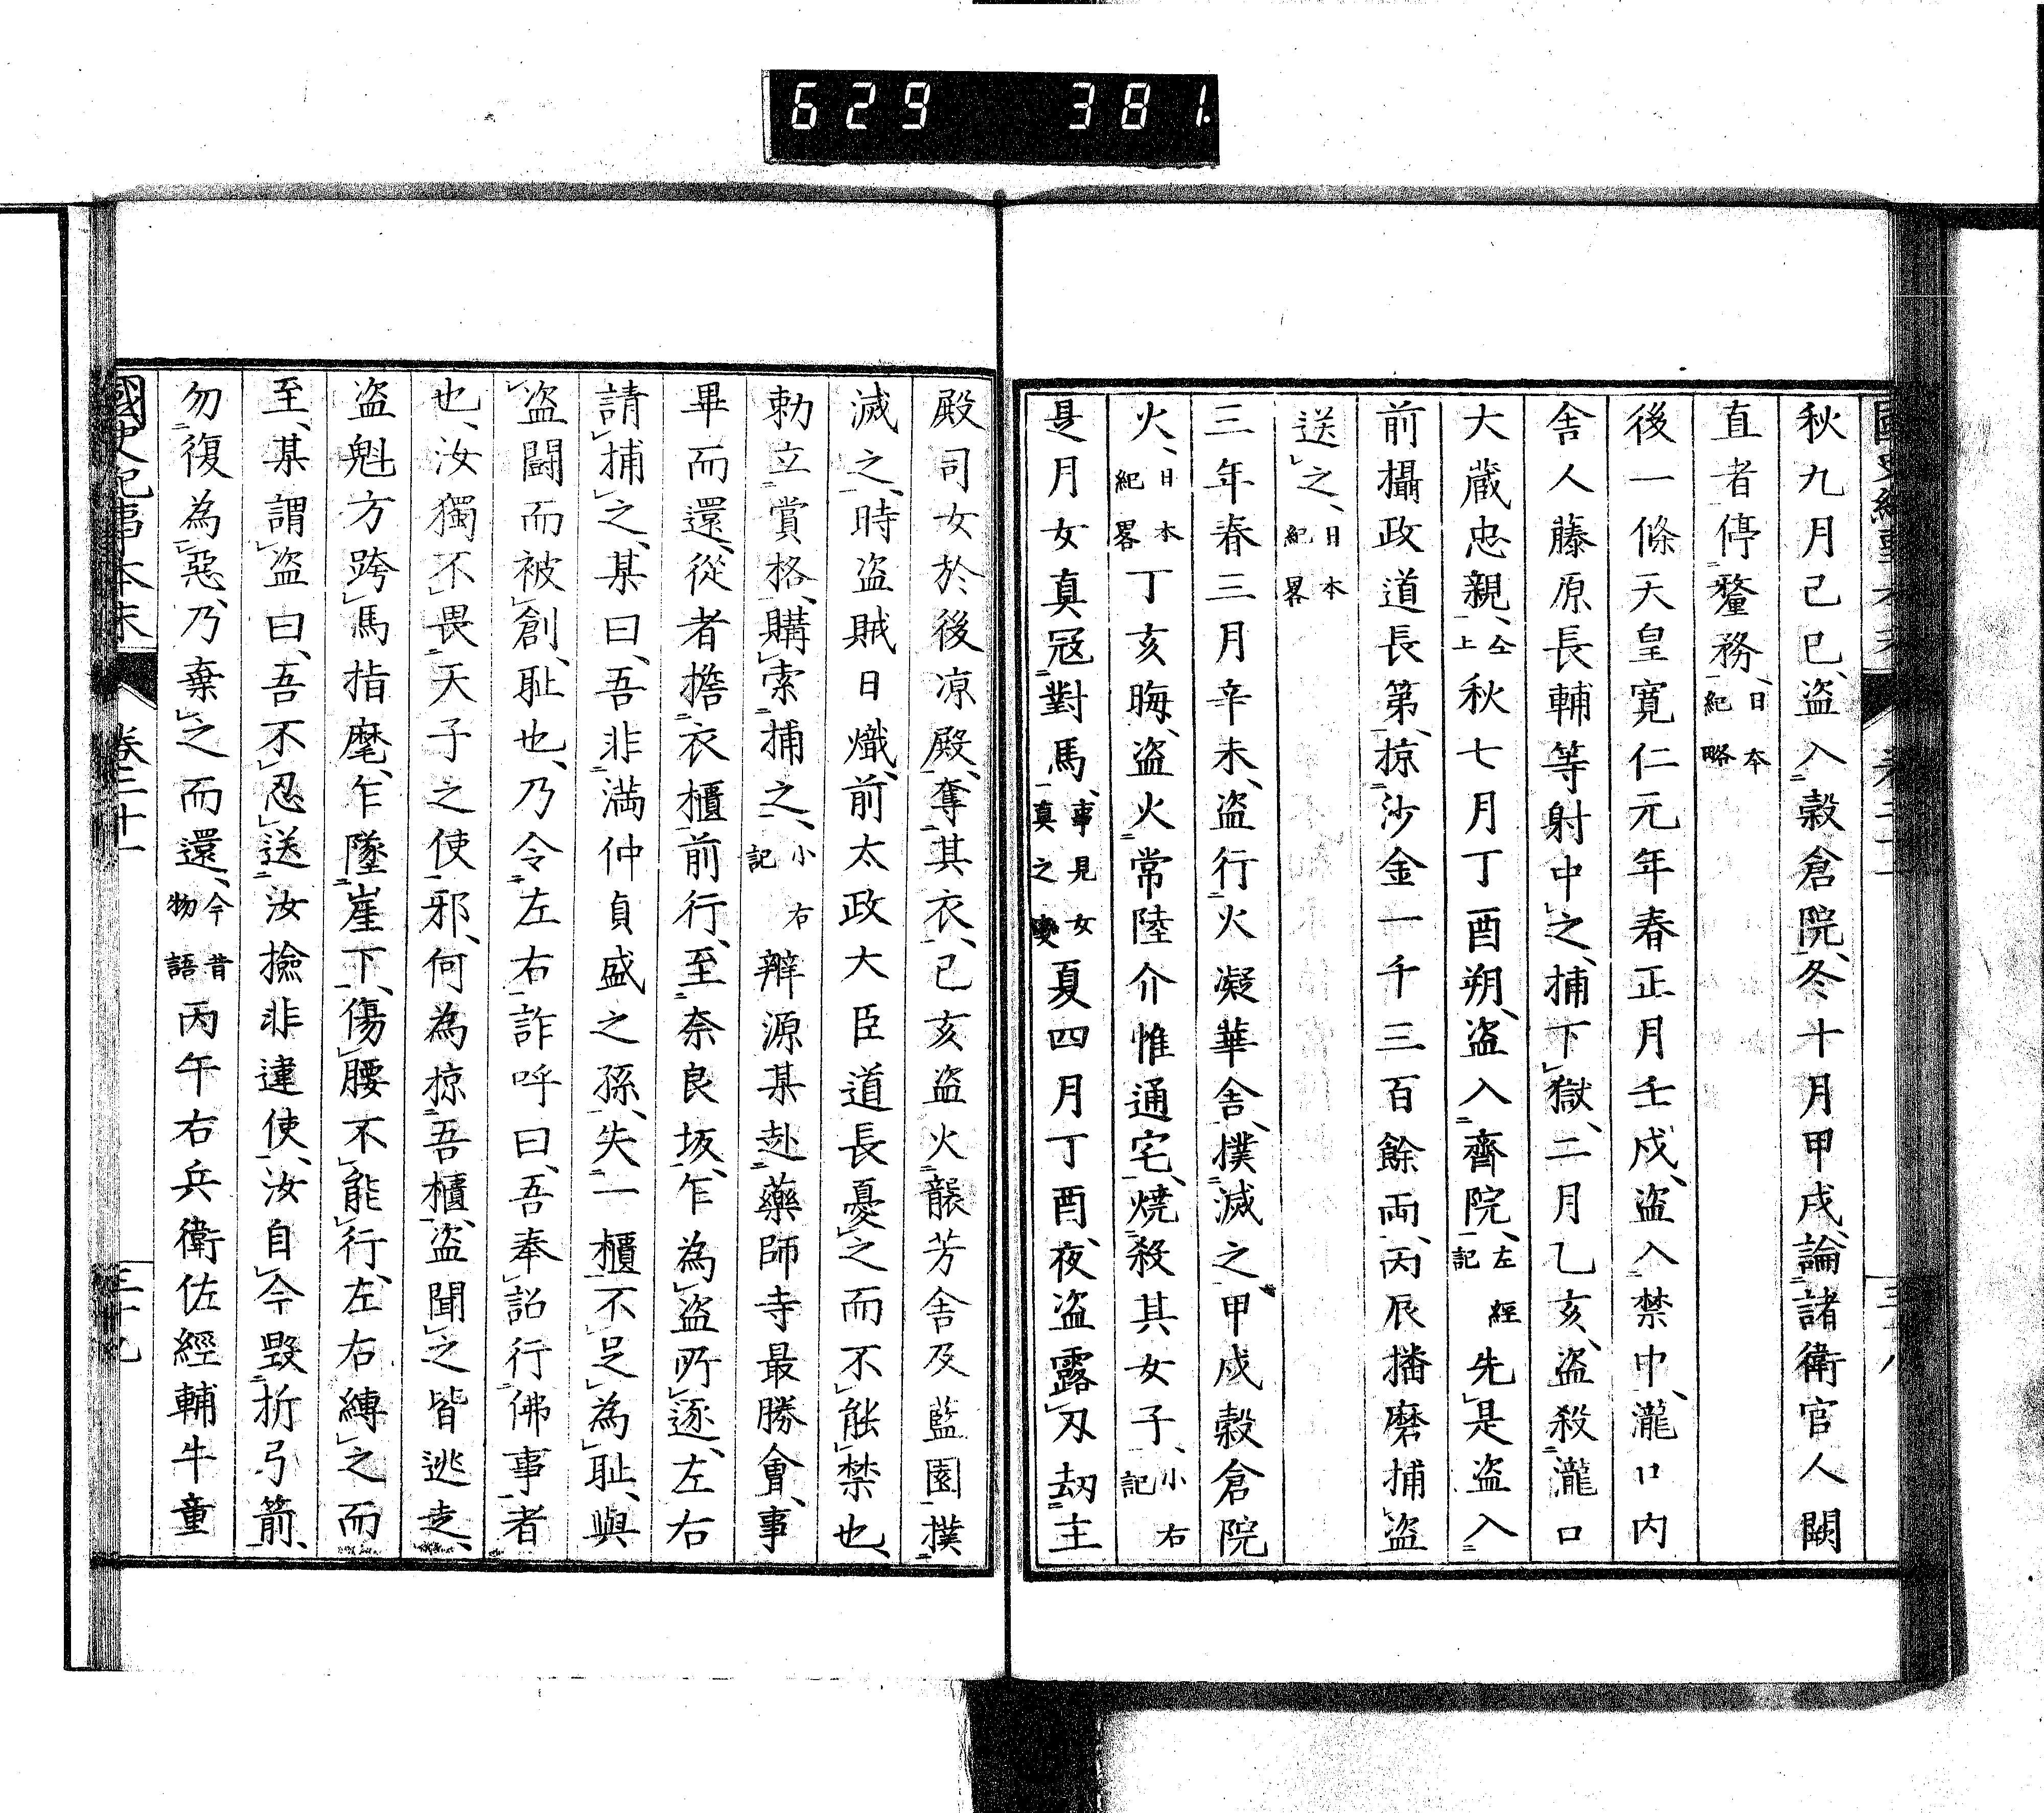 629 381
秋九月己巳、盗入穀倉院、冬十月甲戌、論諸衛官人闕
直者停釐務、日本紀略
後一條天皇寛仁元年春正月壬戌、盗入禁中、瀧口内
舎人藤原長輔等射中之、捕下獄、二月乙亥、盗殺瀧口
大蔵忠親、仝上秋七月丁酉朔、盗入齊院、左經記先是盗入
前攝政道長第、掠沙金一千三百餘兩、丙辰播磨捕盗
送之、日本紀畧
三年春三月辛未、盗行火凝華舎、撲滅之甲戌穀倉院
火、日本紀畧丁亥晦、盗火常陸介惟通宅、燒殺其女子、小右記
是月女真冦對馬、事見女真之變夏四月丁酉、夜盗露刃劫主
殿司女於後凉殿、奪其衣、己亥盗火襲芳舎及藍園撲
滅之、時盗賊日熾、前太政大臣道長憂之而不能禁也、
勅立賞格、購索捕之、小右記辬源某赴藥師寺最勝會、事
畢而還、從者擔衣櫃前行、至奈良坂、乍為盗所逐、左右
請捕之、某曰、吾非滿仲貞盛之孫、失一櫃不足為耻、與
盗闘而被創、耻也、乃令左右詐呼曰、吾奉詔行佛事者
也、汝獨不畏天子之使邪、何為掠吾櫃、盗聞之皆逃走、
盗魁方跨馬指麾、乍墜崖下、傷腰不能行、左右縛之而
至、某謂盗曰、吾不忍送汝撿非違使、汝自今毀折弓箭、
勿復為惡、乃棄之而還、今昔物語丙午右兵衛佐經輔牛童
國史紀事本末 卷三十一